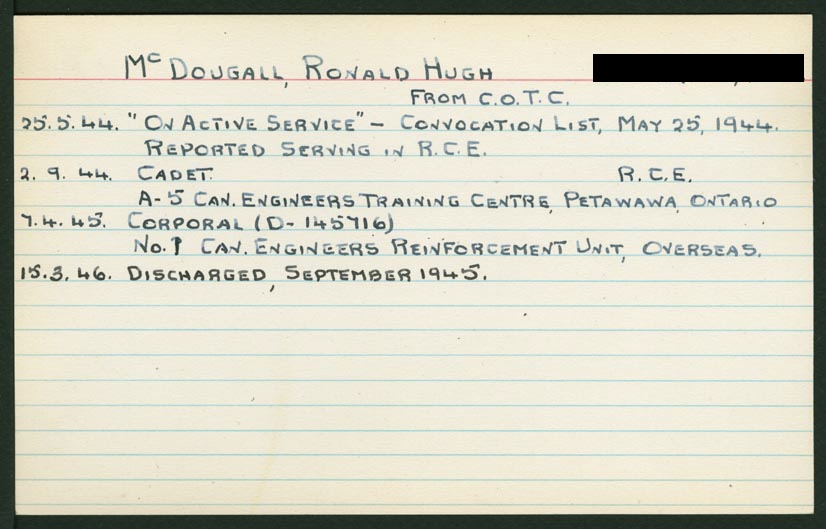 McDOUGALL, RONALD HUGH
FROM C.O.T.C.
25.5.44. "ON ACTIVE SERVICE" - CONVOCATION LIST, MAY 25, 1944.
REPORTED SERVING IN R.C.E.
2. 9. 44. CADET. R.C.E.
A-5 CAN. ENGINEERS TRAINING CENTRE, PETAWAWA, ONTARIO
7.4.45. CORPORAL (D-145716)
No. 1 CAN. ENGINEERS REINFORCEMENT UNIT, OVERSEAS.
15.3.46. DISCHARGED, SEPTEMBER 1945.